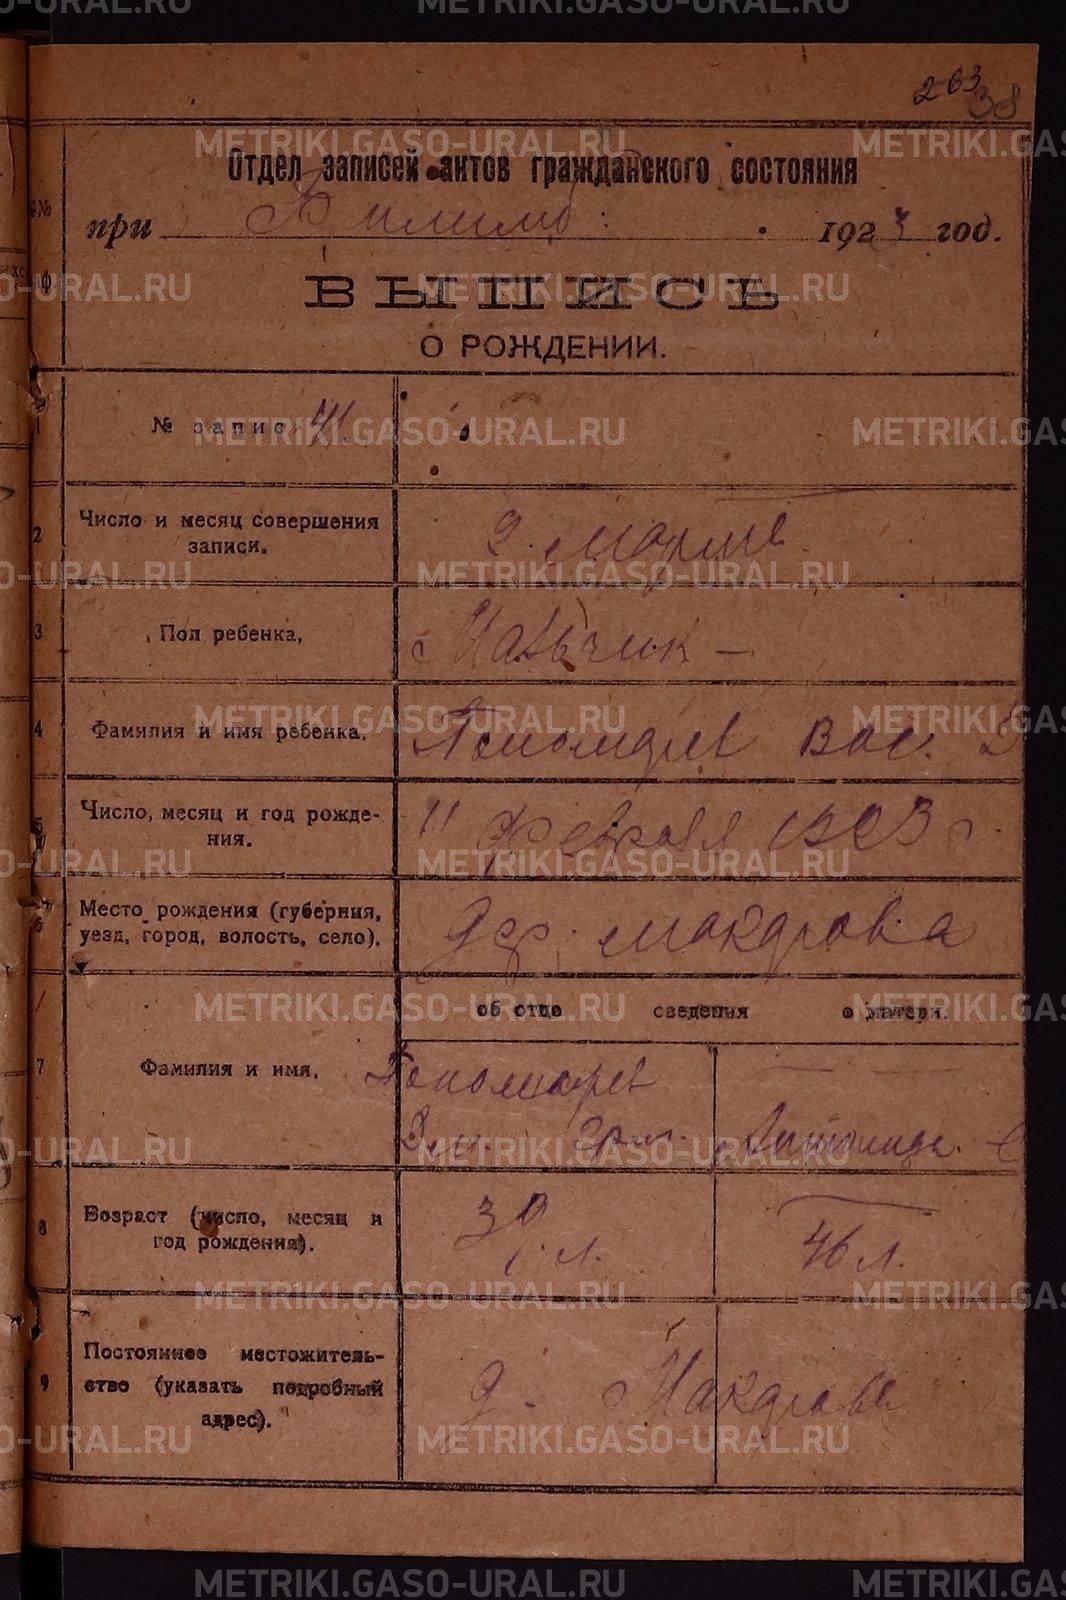 METRIKI.GASO-URAL.RU
263
38
Отдел записей актов гражданского состояния
при 1923 год.
ВЫПИСЬ
О РОЖДЕНИИ.
1 № запис 41.
2 Число и месяц совершения записи. 9 марта
3 Пол ребенка. Мальчик —
4 Фамилия и имя ребенка. Пономарев Вас. Д
5 Число, месяц и год рожде-
ния. 11 февраля 1923 г.
6 Место рождения (губерния,
уезд, город, волость, село). дер. Макарова
об отце сведения о матери.
7 Фамилия и имя. Пономарев
Дм. Антонида
8 Возраст (число, месяц и
год рождения). 39 л. 46 л.
9 Постоянное местожитель-
ство (указать подробный
адрес). д. Макарова